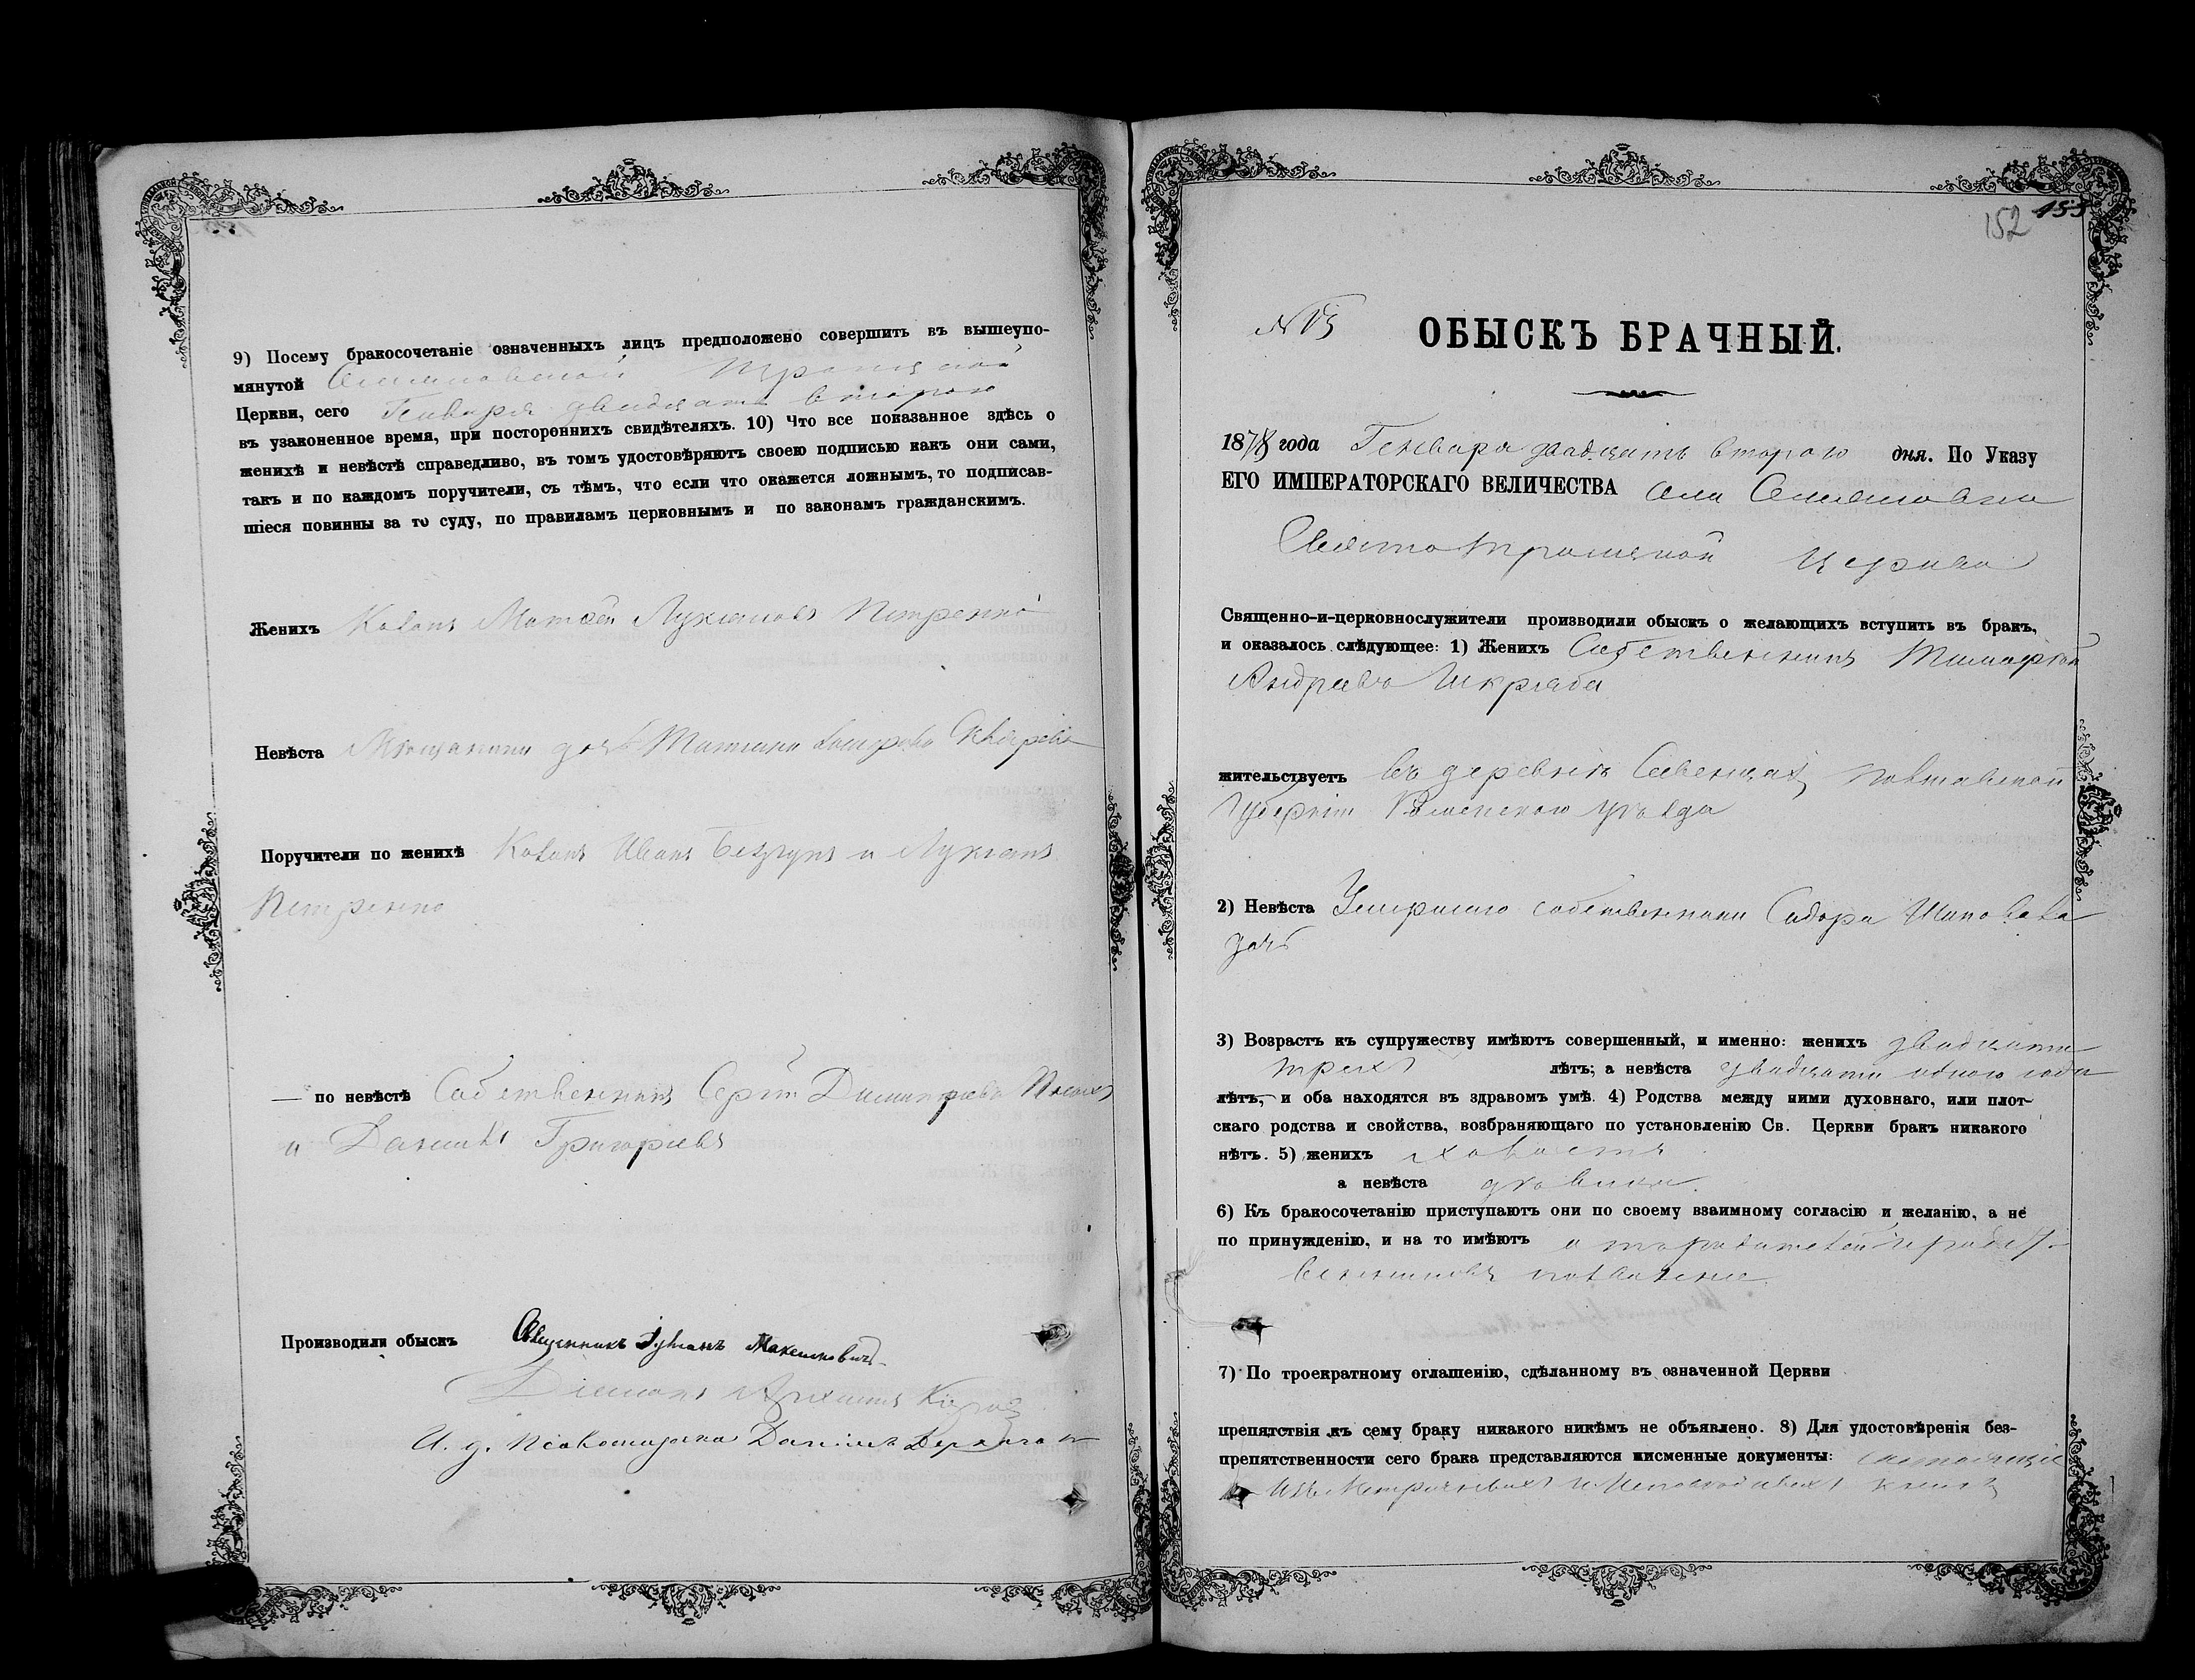 9) Посему бракосочетаніе означенныхъ лицъ предположено совершить въ вышеупо-
мянутой
Церкви, сего Генваря двадцать второго
въ узаконенное время, при постороннихъ свидѣтеляхъ. 10) Что все показанное здѣсь о
женихѣ и невѣстѣ справедливо, въ томъ удостовѣряютъ своею подписью какъ они сами,
такъ и по каждомъ поручители, съ тѣмъ, что если что окажется ложнымъ, то подписав-
шіеся повинны за то суду, по правиламъ церковнымъ и по законамъ гражданскимъ.
Женихъ Козакъ Матѳей Лукіановъ Петренко
Невѣста Мѣщанина дочь Татіана
Поручители по женихѣ Козакъ Иванъ и Лукіанъ
Петренко
— по невѣстѣ Собственникъ Сергій Димитріевъ
и Даніилъ Григорьевъ
Производили обыскъ Священникъ Максимовичъ
Діаконъ
И. д. Псаломщика Даніилъ
152 153
№
ОБЫСКЪ БРАЧНЫЙ.
1878 года Генваря двадцать второго дня. По Указу
ЕГО ИМПЕРАТОРСКАГО ВЕЛИЧЕСТВА села
Свято Троицкой Церкви
Священно-и-церковнослужители производили обыскъ о желающихъ вступить въ бракъ,
и оказалось слѣдующее: 1) Женихъ Собственникъ Тимофей
Андреевъ Шкряба
жительствуетъ въ деревнѣ Полтавской
Губерніи Роменского уѣзда
2) Невѣста Умершаго собственника Сидора Шаповала
дочь
3) Возрастъ къ супружеству имѣютъ совершенный, и именно: женихъ двадцати
трехъ лѣтъ; а невѣста двадцати одного года
лѣтъ, и оба находятся въ здравомъ умѣ. 4) Родства между ними духовнаго, или плот-
скаго родства и свойства, возбраняющаго по установленію Св. Церкви бракъ никакого
нѣтъ. 5) женихъ холостъ
а невѣста дѣвица.
6) Къ бракосочетанію приступаютъ они по своему взаимному согласію и желанію, а не
по принужденію, и на то имѣютъ
7) По троекратному оглашенію, сдѣланному въ означенной Церкви
препятствія къ сему браку никакого никѣмъ не объявлено. 8) Для удостовѣренія без-
препятственности сего брака представляются писменные документы:
изъ Метрическихъ и Исповѣдныхъ книгъ